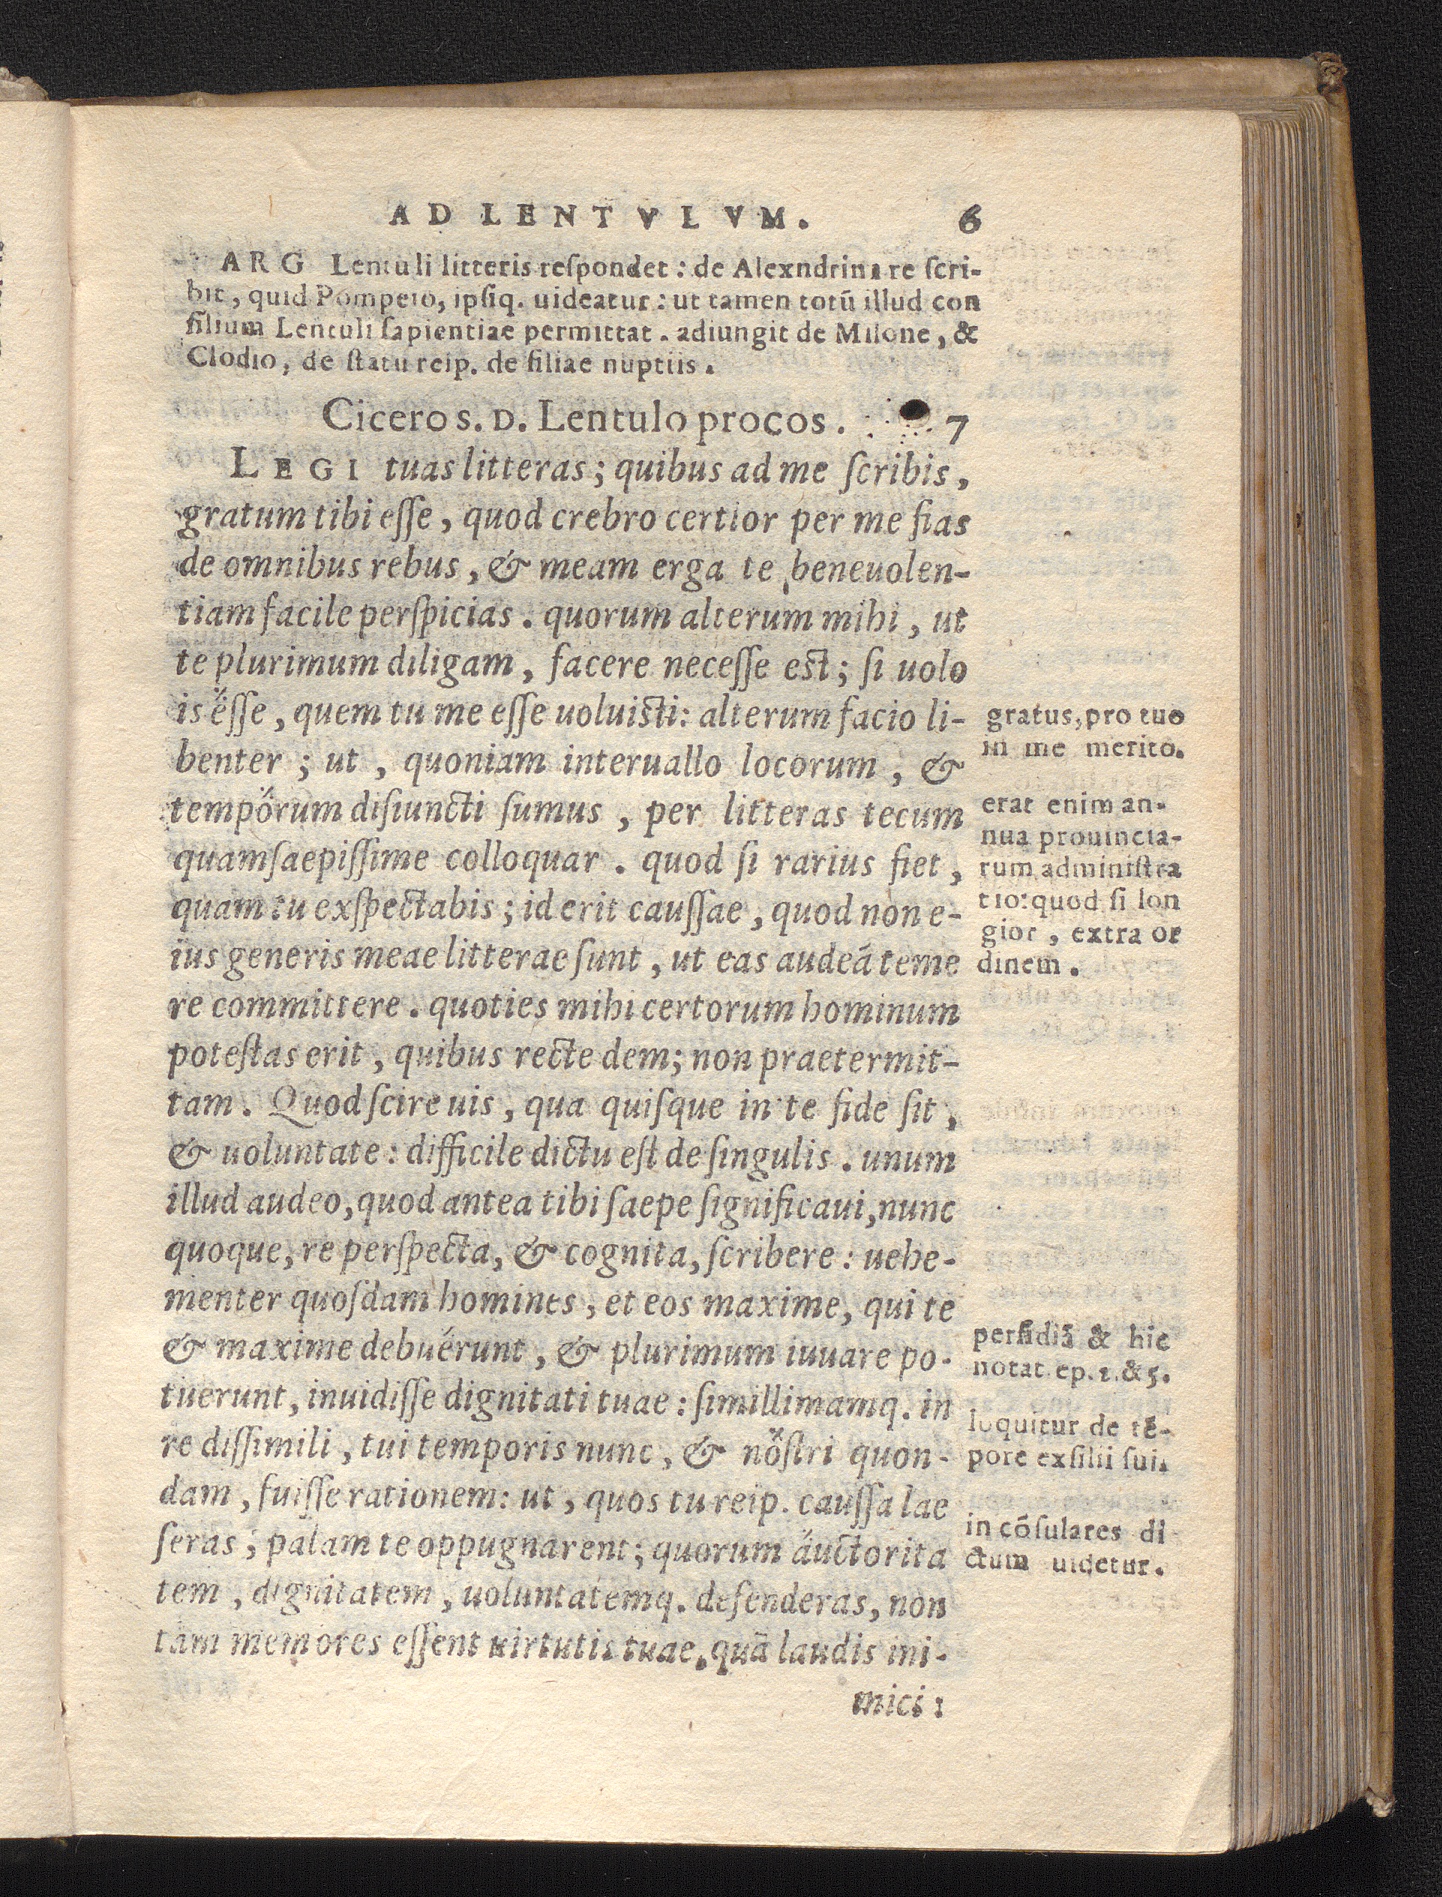 AD LENTVLVM. 6
ARG Lentuli litteris reſpondet : de Alexndrina re ſcri-
bit, quid Pompeio, ipſiq. uideatur : ut tamen totū illud con
ſilium Lentuli ſapientiae permittat. adiungit de Milone, &
Clodio, de ſtatu reip. de filiae nuptiis.
Cicero s. D. Lentulo procos. 7
LEGI tuas litteras; quibus ad me ſcribis,
gratum tibi eſſe, quod crebro certior per me fias
de omnibus rebus, & meam erga te beneuolen-
tiam facile perſpicias. quorum alterum mihi, ut
te plurimum diligam, facere neceſſe est; ſi uolo
is eſſe, quem tu me eſſe uoluisti: alterum facio li-
benter; ut, quoniam interuallo locorum, &
temporum diſiuncti ſumus, per litteras tecum
quamſaepiſſime colloquar. quod ſi rarius fiet,
quam tu exſpectabis; id erit cauſſae, quod non e-
ius generis meae litterae ſunt, ut eas audeā teme
re committere. quoties mihi certorum hominum
poteſtas erit, quibus recte dem; non praetermit-
tam. Quod ſcire uis, qua quiſque in te fide ſit,
& uoluntate: difficile dictu eſt de ſingulis. unum
illud audeo, quod antea tibi ſaepe ſignificaui, nunc
quoque, re perſpecta, & cognita, ſcribere: uehe-
menter quoſdam homines, et eos maxime, qui te
& maxime debuérunt, & plurimum iuuare po-
tuerunt, inuidiſſe dignitati tuae: ſimillimamq. in
re diſſimili, tui temporis nunc, & noſtri quon-
dam, fuiſſe rationem: ut, quos tu reip. cauſſa lae
ſeras; palam te oppugnarent; quorum auctorita
tem, dignitatem, uoluntatemq. defenderas, non
tam memores eſſent uirtutis tuae, quā laudis ini-
mici:
gratus, pro tuo
in me merito.
erat enim an-
nua prouincia-
rum adminiſtra
tio: quod ſi lon
gior, extra or
dinem.
perfidiā & hic
notat ep. 1. & 5.
loquitur de tē-
pore exſilii ſui.
in cōſulares di
ctum uidetur.